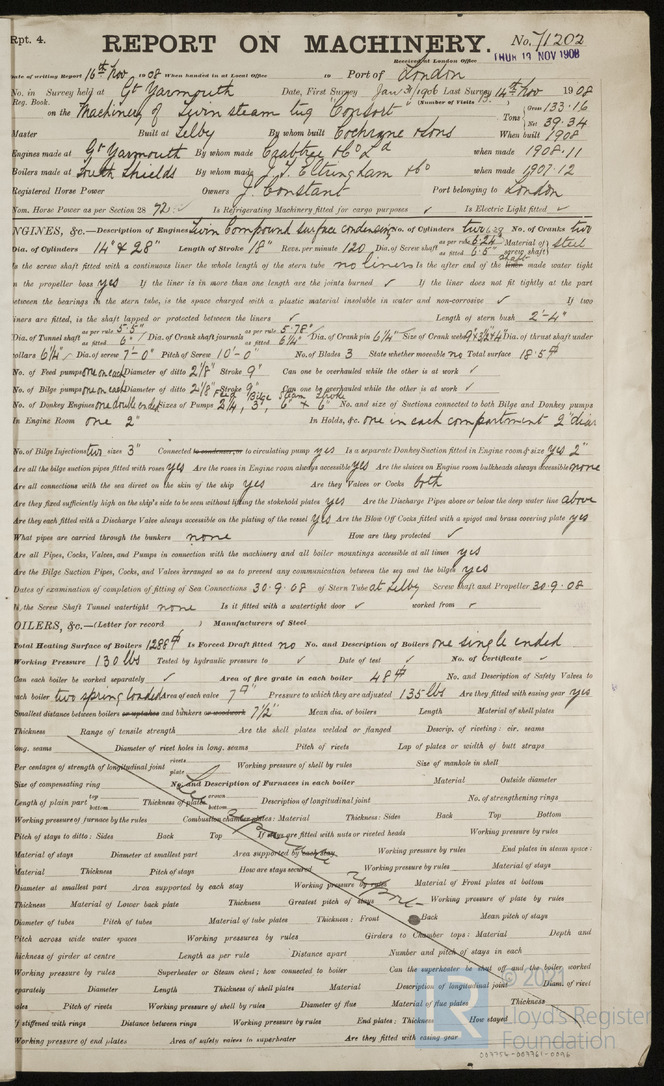 Rpt. 4.
REPORT ON MACHINERY. No. 71202
Received at London Office THUR 19 NOV 1908
Date of writing Report 16th Nov 1908 When handed in at Local Office 10 Port of London
No. in Survey held at Gt Yarmouth Date, First Survey Jan 3/1908 Last Survey 14th Nov 1908
Reg. Book. (Number of Visits 13.)
on the Machinery of Twin steam tug Consort Tons Gross 133.16 Net 39.34
Master Built at Selby By whom built Cochrane & Sons When built 1908
Engines made at Gt Yarmouth By whom made Crabtree & Co Ld when made 1908.11
Boilers made at South Shields By whom made J. T. Eltringham & Co when made 1907.12
Registered Horse Power Owners J. Constant Port belonging to London
Nom. Horse Power as per Section 28 72 Is Refrigerating Machinery fitted for cargo purposes ✓ Is Electric Light fitted ✓
NGINES, &c.—Description of Engines Twin Compound surface condensing No. of Cylinders two No. of Cranks two
Dia. of Cylinders 14" & 28" Length of Stroke 18" Revs. per minute 120 Dia. of Screw shaft as per rule 6.24" as fitted 6.5" Material of screw shaft steel
Is the screw shaft fitted with a continuous liner the whole length of the stern tube no liners Is the after end of the shaft made water tight
in the propeller boss yes If the liner is in more than one length are the joints burned ✓ If the liner does not fit tightly at the part
between the bearings in the stern tube, is the space charged with a plastic material insoluble in water and non-corrosive ✓ If two
liners are fitted, is the shaft lapped or protected between the liners ✓ Length of stern bush 2'-4"
Dia. of Tunnel shaft as per rule 5.5" as fitted 6" Dia. of Crank shaft journals as per rule 5.78" as fitted 6¼" Dia. of Crank pin 6¼" Size of Crank webs Dia. of thrust shaft under
collars 6¼" Dia. of screw 7'-0" Pitch of Screw 10'-0" No. of Blades 3 State whether moveable no Total surface 18.5
No. of Feed pumps one on each Diameter of ditto 2⅛" Stroke 9" Can one be overhauled while the other is at work ✓
No. of Bilge pumps one on each Diameter of ditto 2⅛" Stroke 9" Can one be overhauled while the other is at work ✓
No. of Donkey Engines one double ended Sizes of Pumps No. and size of Suctions connected to both Bilge and Donkey pumps
In Engine Room one 2" In Holds, &c. one in each compartment 2" diar
No. of Bilge Injections two sizes 3" Connected to condenser, or to circulating pump yes Is a separate Donkey Suction fitted in Engine room & size yes 2"
Are all the bilge suction pipes fitted with roses yes Are the roses in Engine room always accessible yes Are the sluices on Engine room bulkheads always accessible none
Are all connections with the sea direct on the skin of the ship yes Are they Valves or Cocks both
Are they fixed sufficiently high on the ship's side to be seen without lifting the stokehold plates yes Are the Discharge Pipes above or below the deep water line above
Are they each fitted with a Discharge Valve always accessible on the plating of the vessel yes Are the Blow Off Cocks fitted with a spigot and brass covering plate yes
What pipes are carried through the bunkers none How are they protected ✓
Are all Pipes, Cocks, Valves, and Pumps in connection with the machinery and all boiler mountings accessible at all times yes
Are the Bilge Suction Pipes, Cocks, and Valves arranged so as to prevent any communication between the sea and the bilges yes
Dates of examination of completion of fitting of Sea Connections 30.9.08 of Stern Tube at Selby Screw shaft and Propeller 30.9.08
Is the Screw Shaft Tunnel watertight none Is it fitted with a watertight door ✓ worked from ✓
OILERS, &c.—(Letter for record ) Manufacturers of Steel
Total Heating Surface of Boilers 1286 Is Forced Draft fitted no No. and Description of Boilers one single ended
Working Pressure 130 lbs Tested by hydraulic pressure to ✓ Date of test ✓ No. of Certificate ✓
Can each boiler be worked separately ✓ Area of fire grate in each boiler 48 No. and Description of Safety Valves to
each boiler two spring loaded Area of each valve 7 Pressure to which they are adjusted 135 lbs Are they fitted with easing gear yes
Smallest distance between boilers or uptakes and bunkers or woodwork 7½" Mean dia. of boilers Length Material of shell plates
Thickness Range of tensile strength Are the shell plates welded or flanged Descrip. of riveting: cir. seams
long. seams Diameter of rivet holes in long. seams Pitch of rivets Lap of plates or width of butt straps
Per centages of strength of longitudinal joint rivets plate Working pressure of shell by rules Size of manhole in shell
Size of compensating ring No. and Description of Furnaces in each boiler Material Outside diameter
Length of plain part top bottom Thickness of plates crown bottom Description of longitudinal joint No. of strengthening rings
Working pressure of furnace by the rules Combustion chamber plates: Material Thickness: Sides Back Top Bottom
Pitch of stays to ditto: Sides Back Top If stays are fitted with nuts or riveted heads Working pressure by rules
Material of stays Diameter at smallest part Area supported by each stay Working pressure by rules End plates in steam space:
Material Thickness Pitch of stays How are stays secured Working pressure by rules Material of stays
Diameter at smallest part Area supported by each stay Working pressure by rules Material of Front plates at bottom
Thickness Material of Lower back plate Thickness Greatest pitch of stays Working pressure of plate by rules
Diameter of tubes Pitch of tubes Material of tube plates Thickness: Front Back Mean pitch of stays
Pitch across wide water spaces Working pressures by rules Girders to Chamber tops: Material Depth and
thickness of girder at centre Length as per rule Distance apart Number and pitch of stays in each
Working pressure by rules Superheater or Steam chest; how connected to boiler Can the superheater be shut off and the boiler worked
separately Diameter Length Thickness of shell plates Material Description of longitudinal joint Diam. of rivet
holes Pitch of rivets Working pressure of shell by rules Diameter of flue Material of flue plates Thickness
If stiffened with rings Distance between rings Working pressure by rules End plates: Thickness How stayed
Working pressure of end plates Area of safety valves to superheater Are they fitted with easing gear
See Separate Report
LR © 2021
Lloyd's Register
Foundation
003756-003761-0096